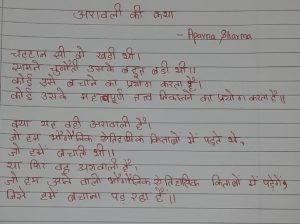 अरावली की कथा
- Aparna Sharma
चट्टान सी वो खड़ी थी।
सामने चुनौती उसके बहुत बड़ी थी।।
कोई उसे बचाने का प्रयोग करता है।
कोई उसके महत्वपूर्ण तत्व निकालने का प्रयोग करता है।।
क्या यह वही अरावली है।
जो हम भौगोलिक ऐतिहासिक किताबों में पढ़ते थे,
जो हमें बचाती थी।।
या फिर वह अरावली है,
जो हम आने वाली भौगोलिक ऐतिहासिक किताबों में पढ़ेंगे,
जिसे हमें बचाना पड़ रहा है।।